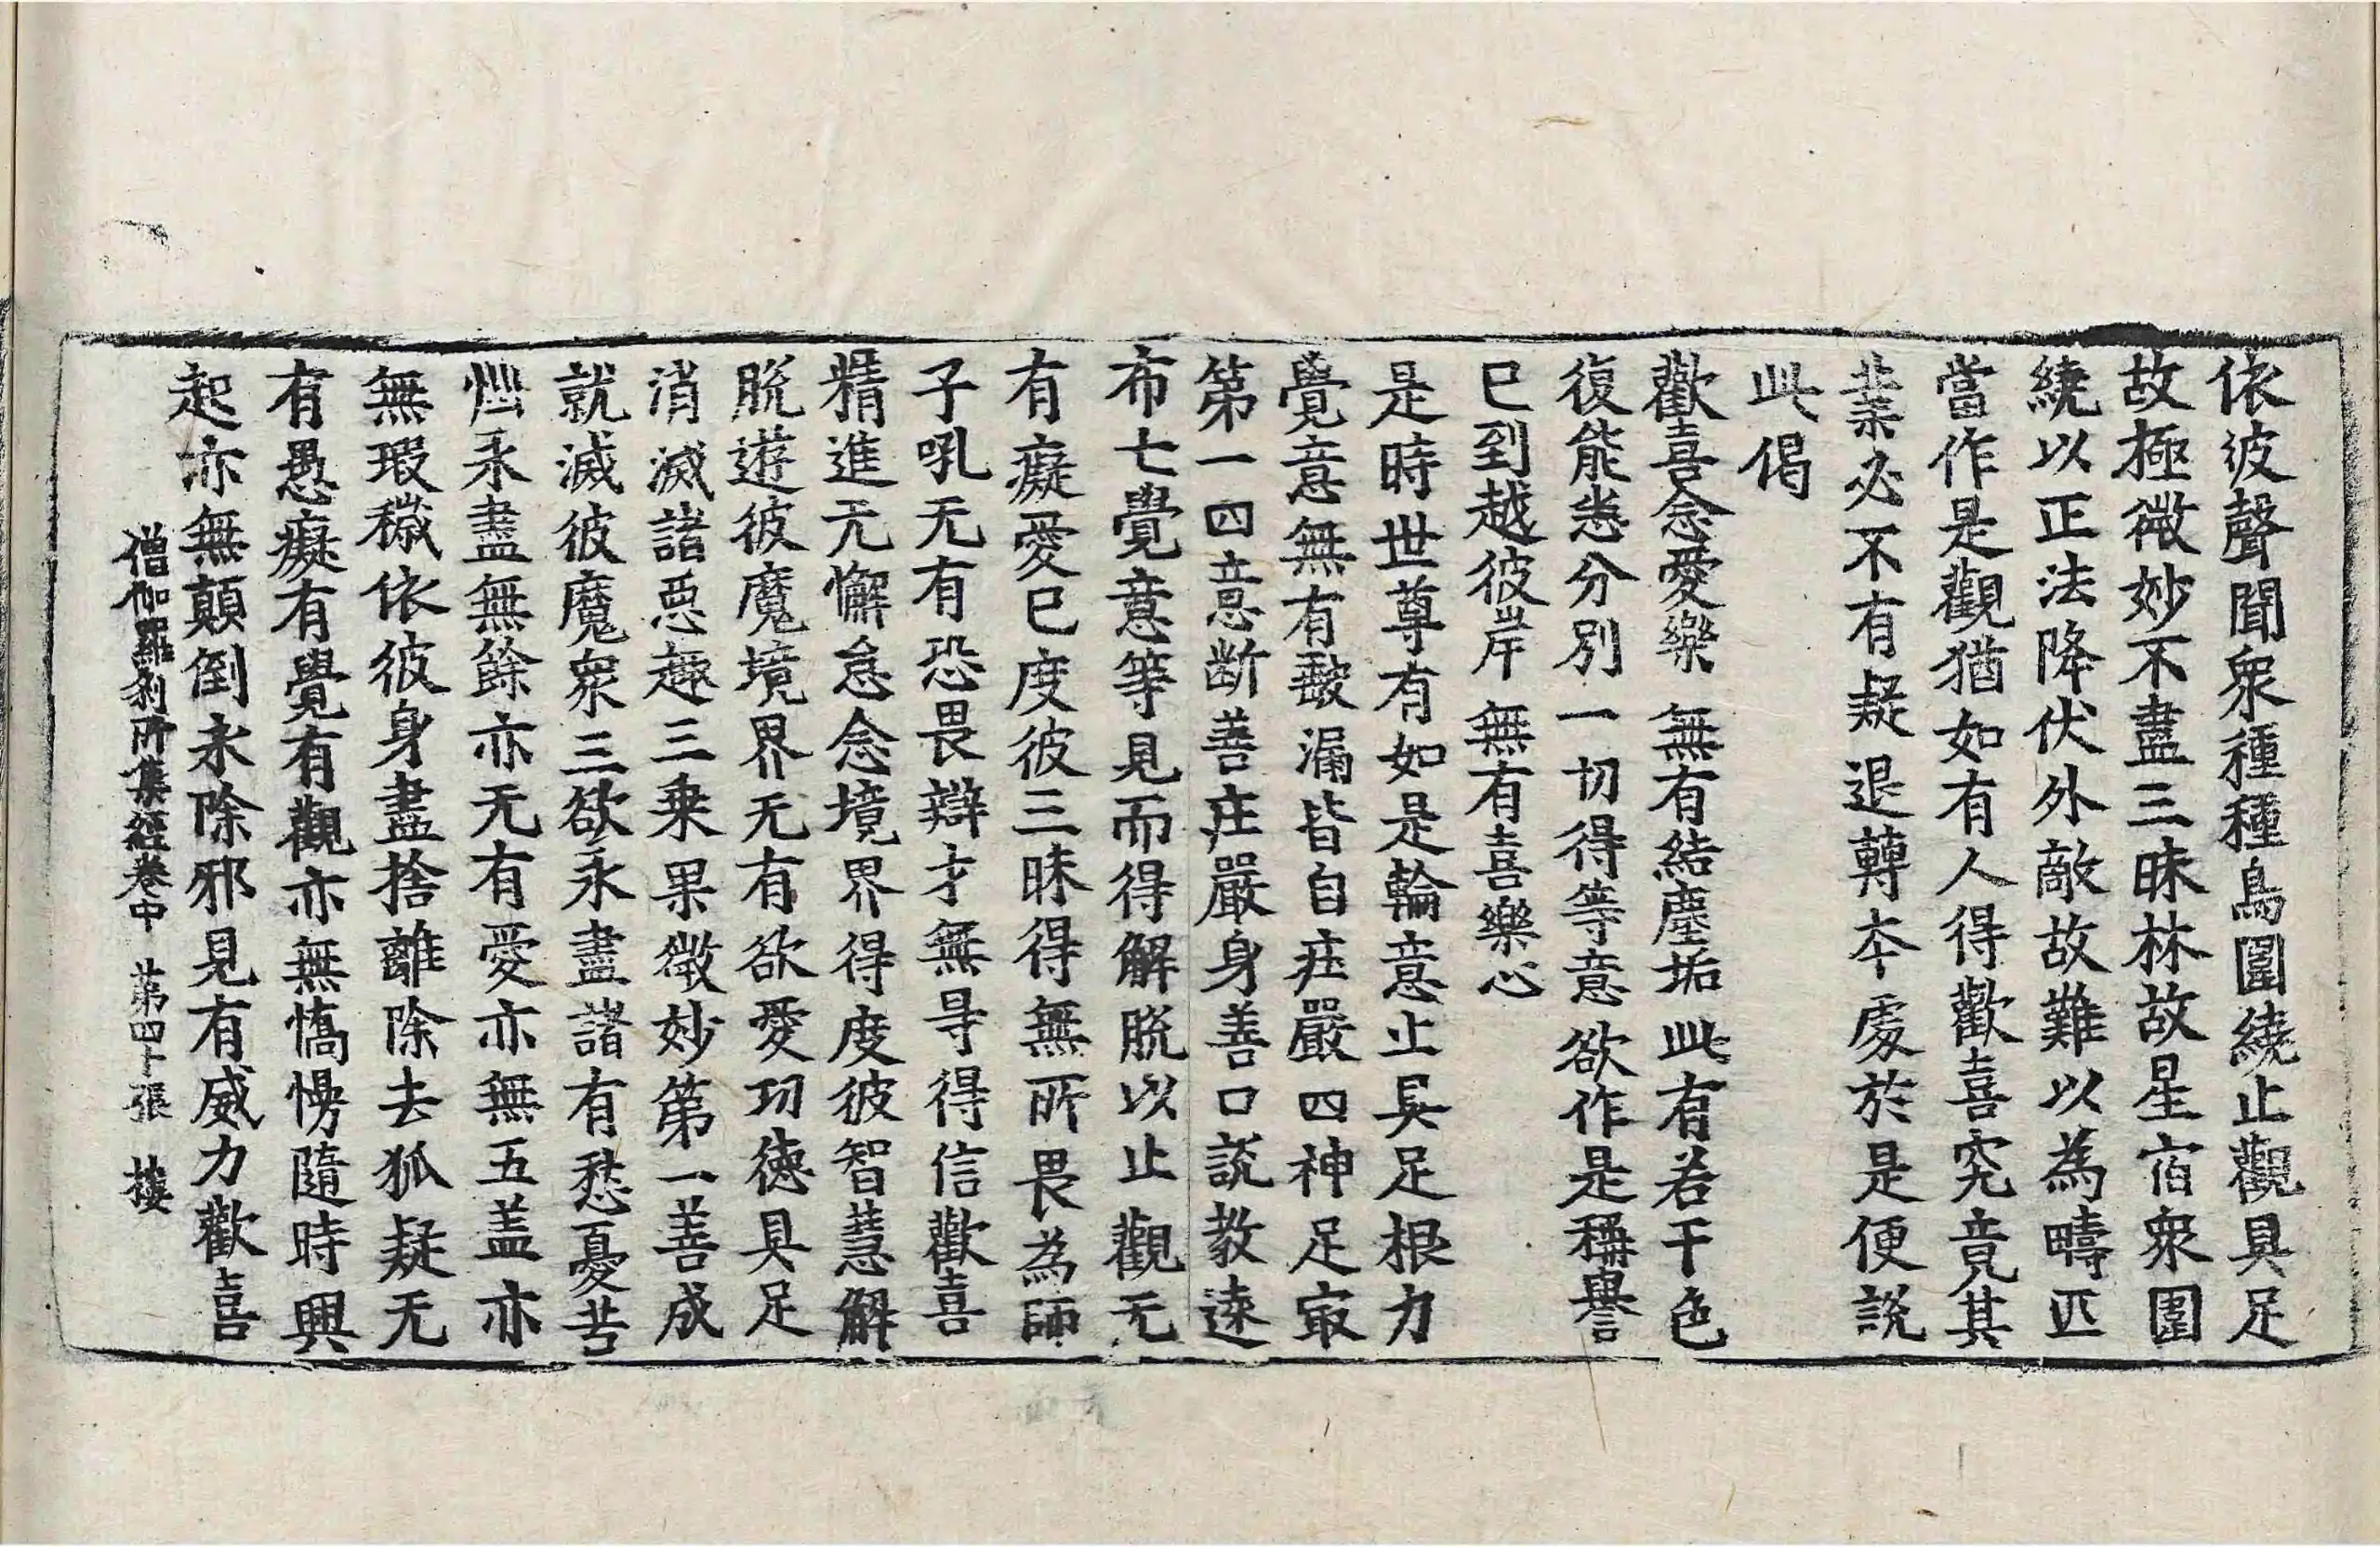 依彼聲聞衆種種鳥圍繞止觀具足
故極微妙不盡三昧林故星宿衆圍
繞以正法降伏外敵故難以為疇匹
當作是觀猶如有人得歡喜究竟其
業必不有疑退轉本處於是便說
此偈
歡喜念愛樂 無有結塵垢 此有若干色
復能悉分別 一切得等意 欲作是稱譽
已到越彼岸 無有喜樂心
是時世尊有如是輪意止具足根力
覺意無有㲉漏皆自庄嚴四神足冣
第一四意断善庄嚴身善口說教逺
布七覺意等見而得解脫以止觀无
有癡愛已度彼三昧得無所畏為師
子吼无有恐畏辯才無㝵得信歡喜
精進无懈怠念境界得度彼智慧解
脫遊彼魔境界无有欲愛功德具足
消滅諸惡趣三乗果微妙第一善成
就滅彼魔衆三欲永盡諸有愁憂苦
惱永盡無餘亦无有愛亦無五盖亦
無瑕穢依彼身盡捨離除去狐疑无
有愚癡有覺有觀亦無憍慢隨時興
起亦無顛倒永除邪見有威力歡喜
僧伽羅刹所集經卷中 苐四十張 樓